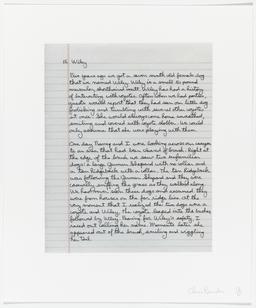 16. Wiley
Five years ago we got a seven month old female dog
that we named Wiley. Wiley is a small 20 pound
mutt. Wiley has had a history
of interacting with coyotes. Often when we had parties,
guests would report that they had seen our little dog
frolicking and tumbling with several other coyotes
at once. She would always come home unscathed,
smiling and covered with coyote slobber. We could
only assume that she was playing with them.
One day Nancy and I were looking across our canyon
to an area that had been cleared of brush. Right at
the edge of the brush we saw two unfamiliar
dogs: a large German Shepard with no collar and
a tan Ridgeback with a collar. The tan Ridgeback
was following the German Shepard and they were
casually sniffing the grass as they walked along.
We had never seen these dogs and assumed they
were from houses on the far ridge line. At the
very moment that I realized the two dogs were a
coyote and Wiley, the coyote leaped into the bushes
followed by Wiley. Fearing for Wiley's safety, I
raced out calling her name. Moments later she
appeared out of the brush, smiling and wiggling
her tail.